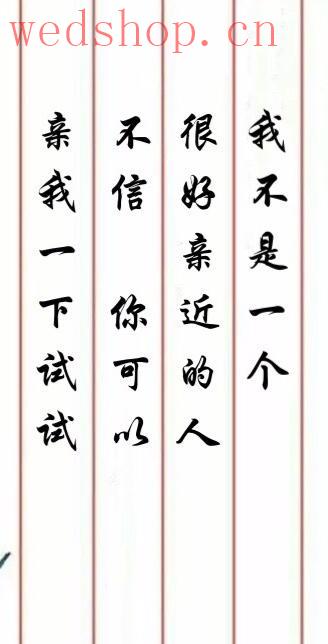 wedshop.cn
我不是一个
很好亲近的人
不信 你可以
亲我一下试试